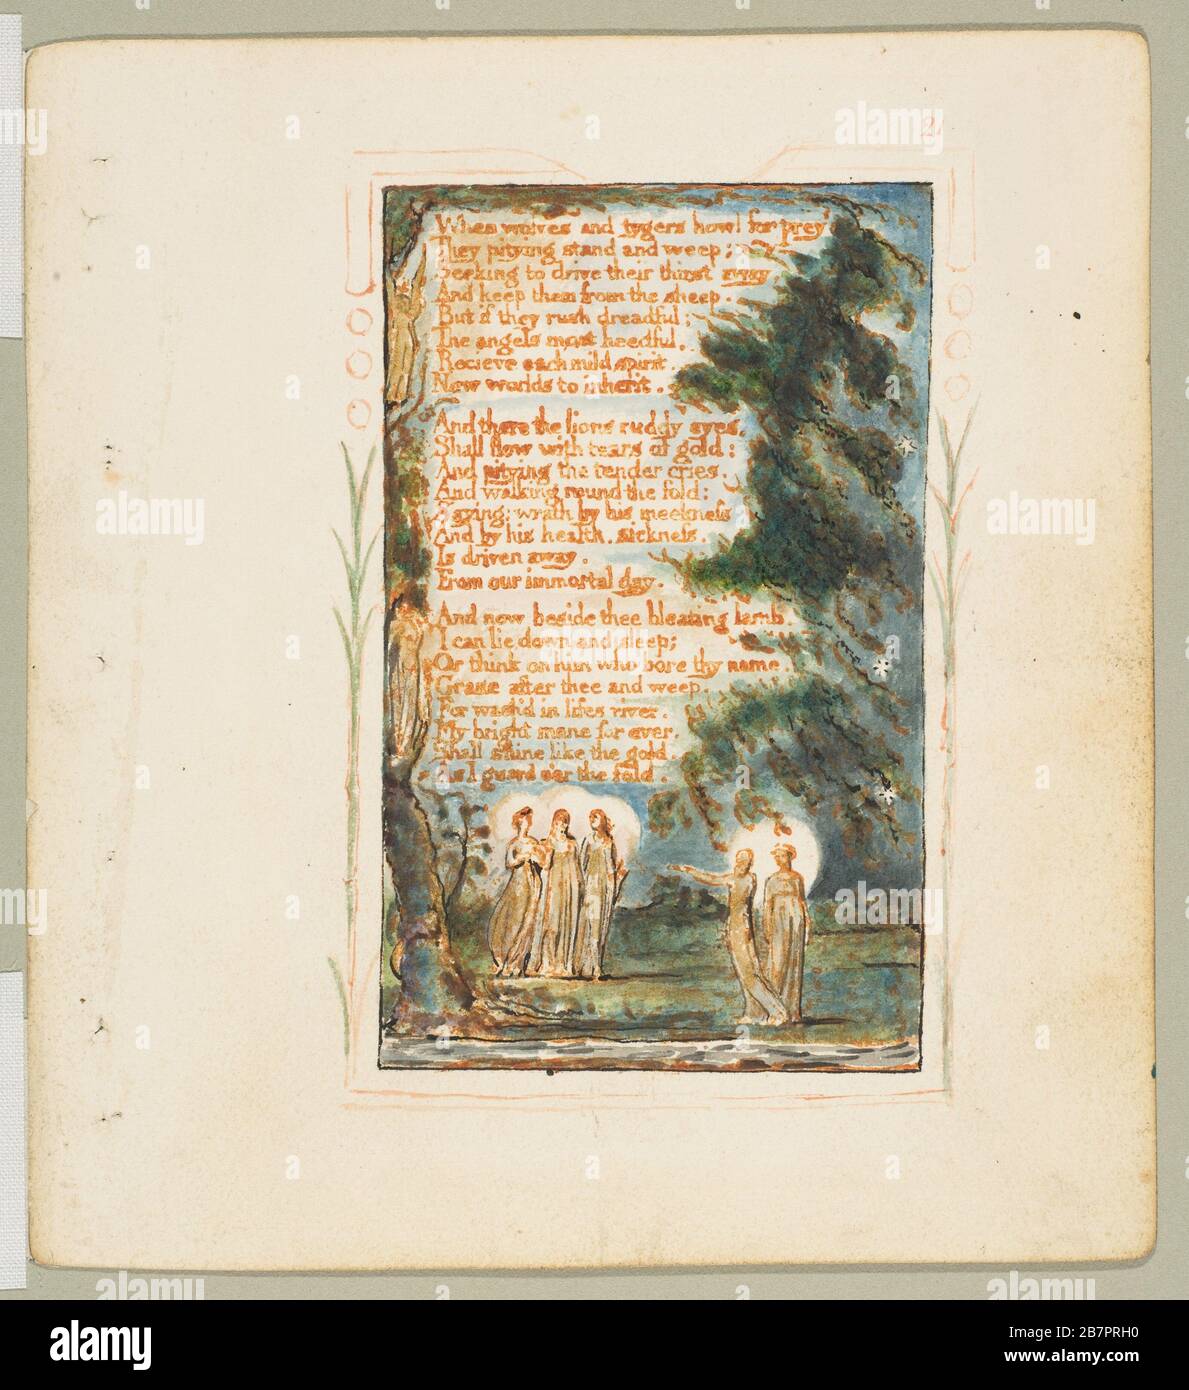 2
When wolves and tygers howl for prey
They pitying stand and weep;
Seeking to drive their thirst away,
And keep them from the sheep.
But if they rush dreadful;
The angels most heedful,
Recieve each mild spirit
New worlds to inherit.
And there the lions ruddy eyes,
Shall flow with tears of gold:
And pitying the tender cries,
And walking round the fold:
Saying: wrath by his meekness
And by his health, sickness,
Is driven away,
From our immortal day.
And now beside thee bleating lamb,
I can lie down and sleep;
Or think on him who bore thy name,
Graze after thee and weep.
For wash'd in lifes river,
My bright mane for ever,
Shall shine like the gold,
As I guard o'er the fold.
alamy
Image ID: 2B7PRH0
www.alamy.com